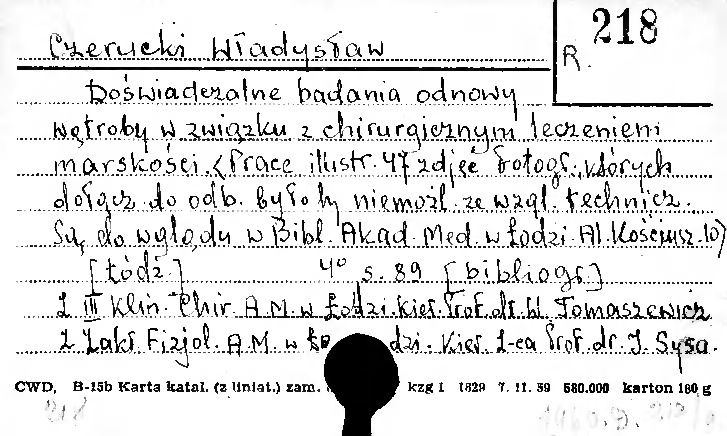 218
R.
Czerucki Władysław
Doświadczalne badania odnowy
wątroby w związku z chirurgicznym leczeniem
marskości. <Prace ilustr. 47 zdjęć fotogr., których
dołącz. do odb. byłoby niemożl. ze wzgl. technicz.
Są do wglądu w Bibl. Akad. Med. w Łodzi Al. Kościusz. 10)
[Łódź] 4° s. 89 [bibliogr.]
Z III Klin. Chir. A.M. w Łodzi. Kier. Prof. dr. W. Tomaszewicz
Z Zakł. Fizjol. A.M. w Łodzi. Kier. Z-ca Prof. dr. J. Sysa.
CWD, B-15b Karta katal. (z liniat.) zam. kzg 1 1829 7. 11. 59 580.000 karton 180 g
218